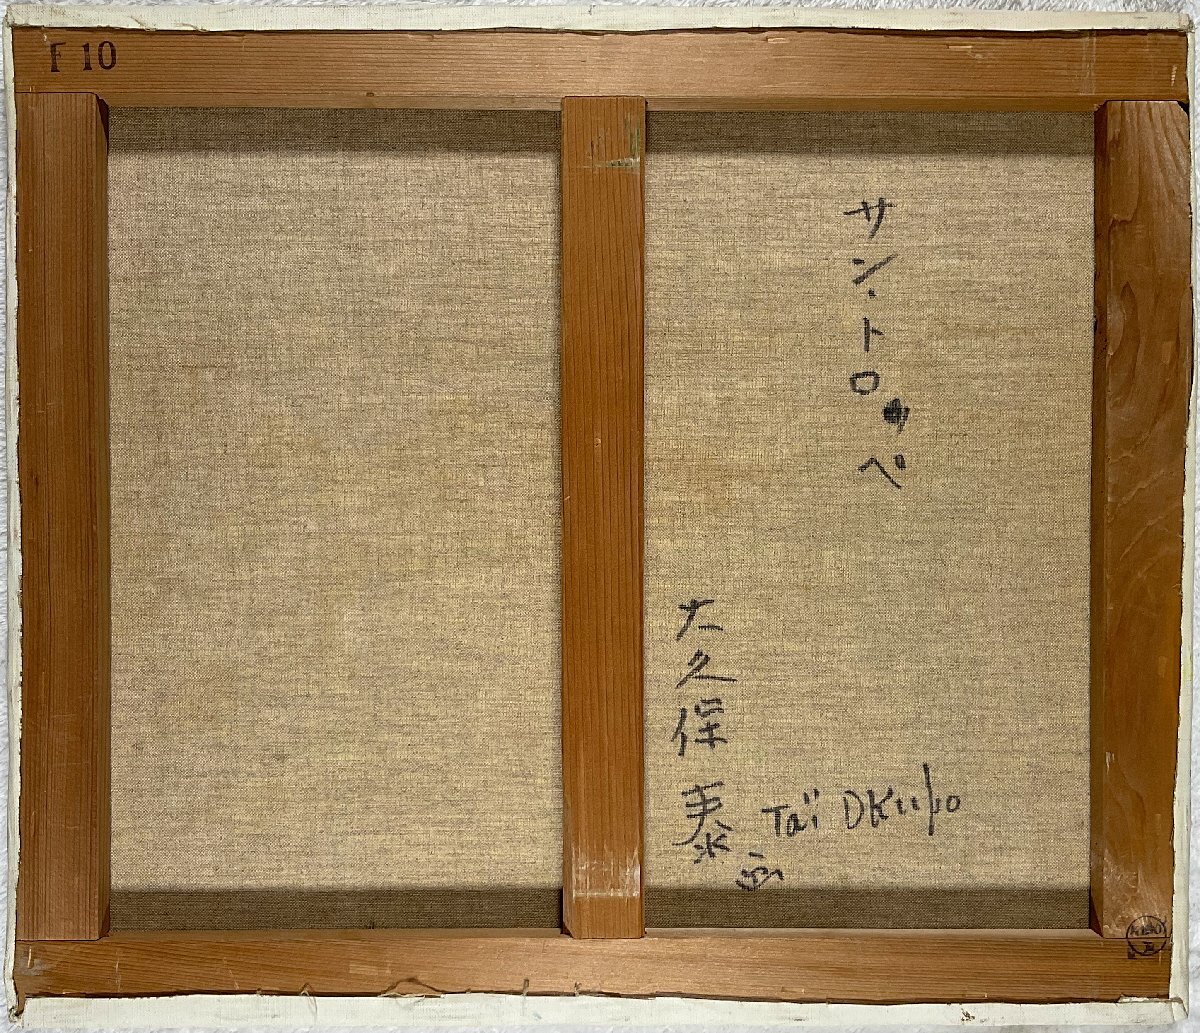 F 10
サン・トロッペ
大久保泰
画
Taï OKubo